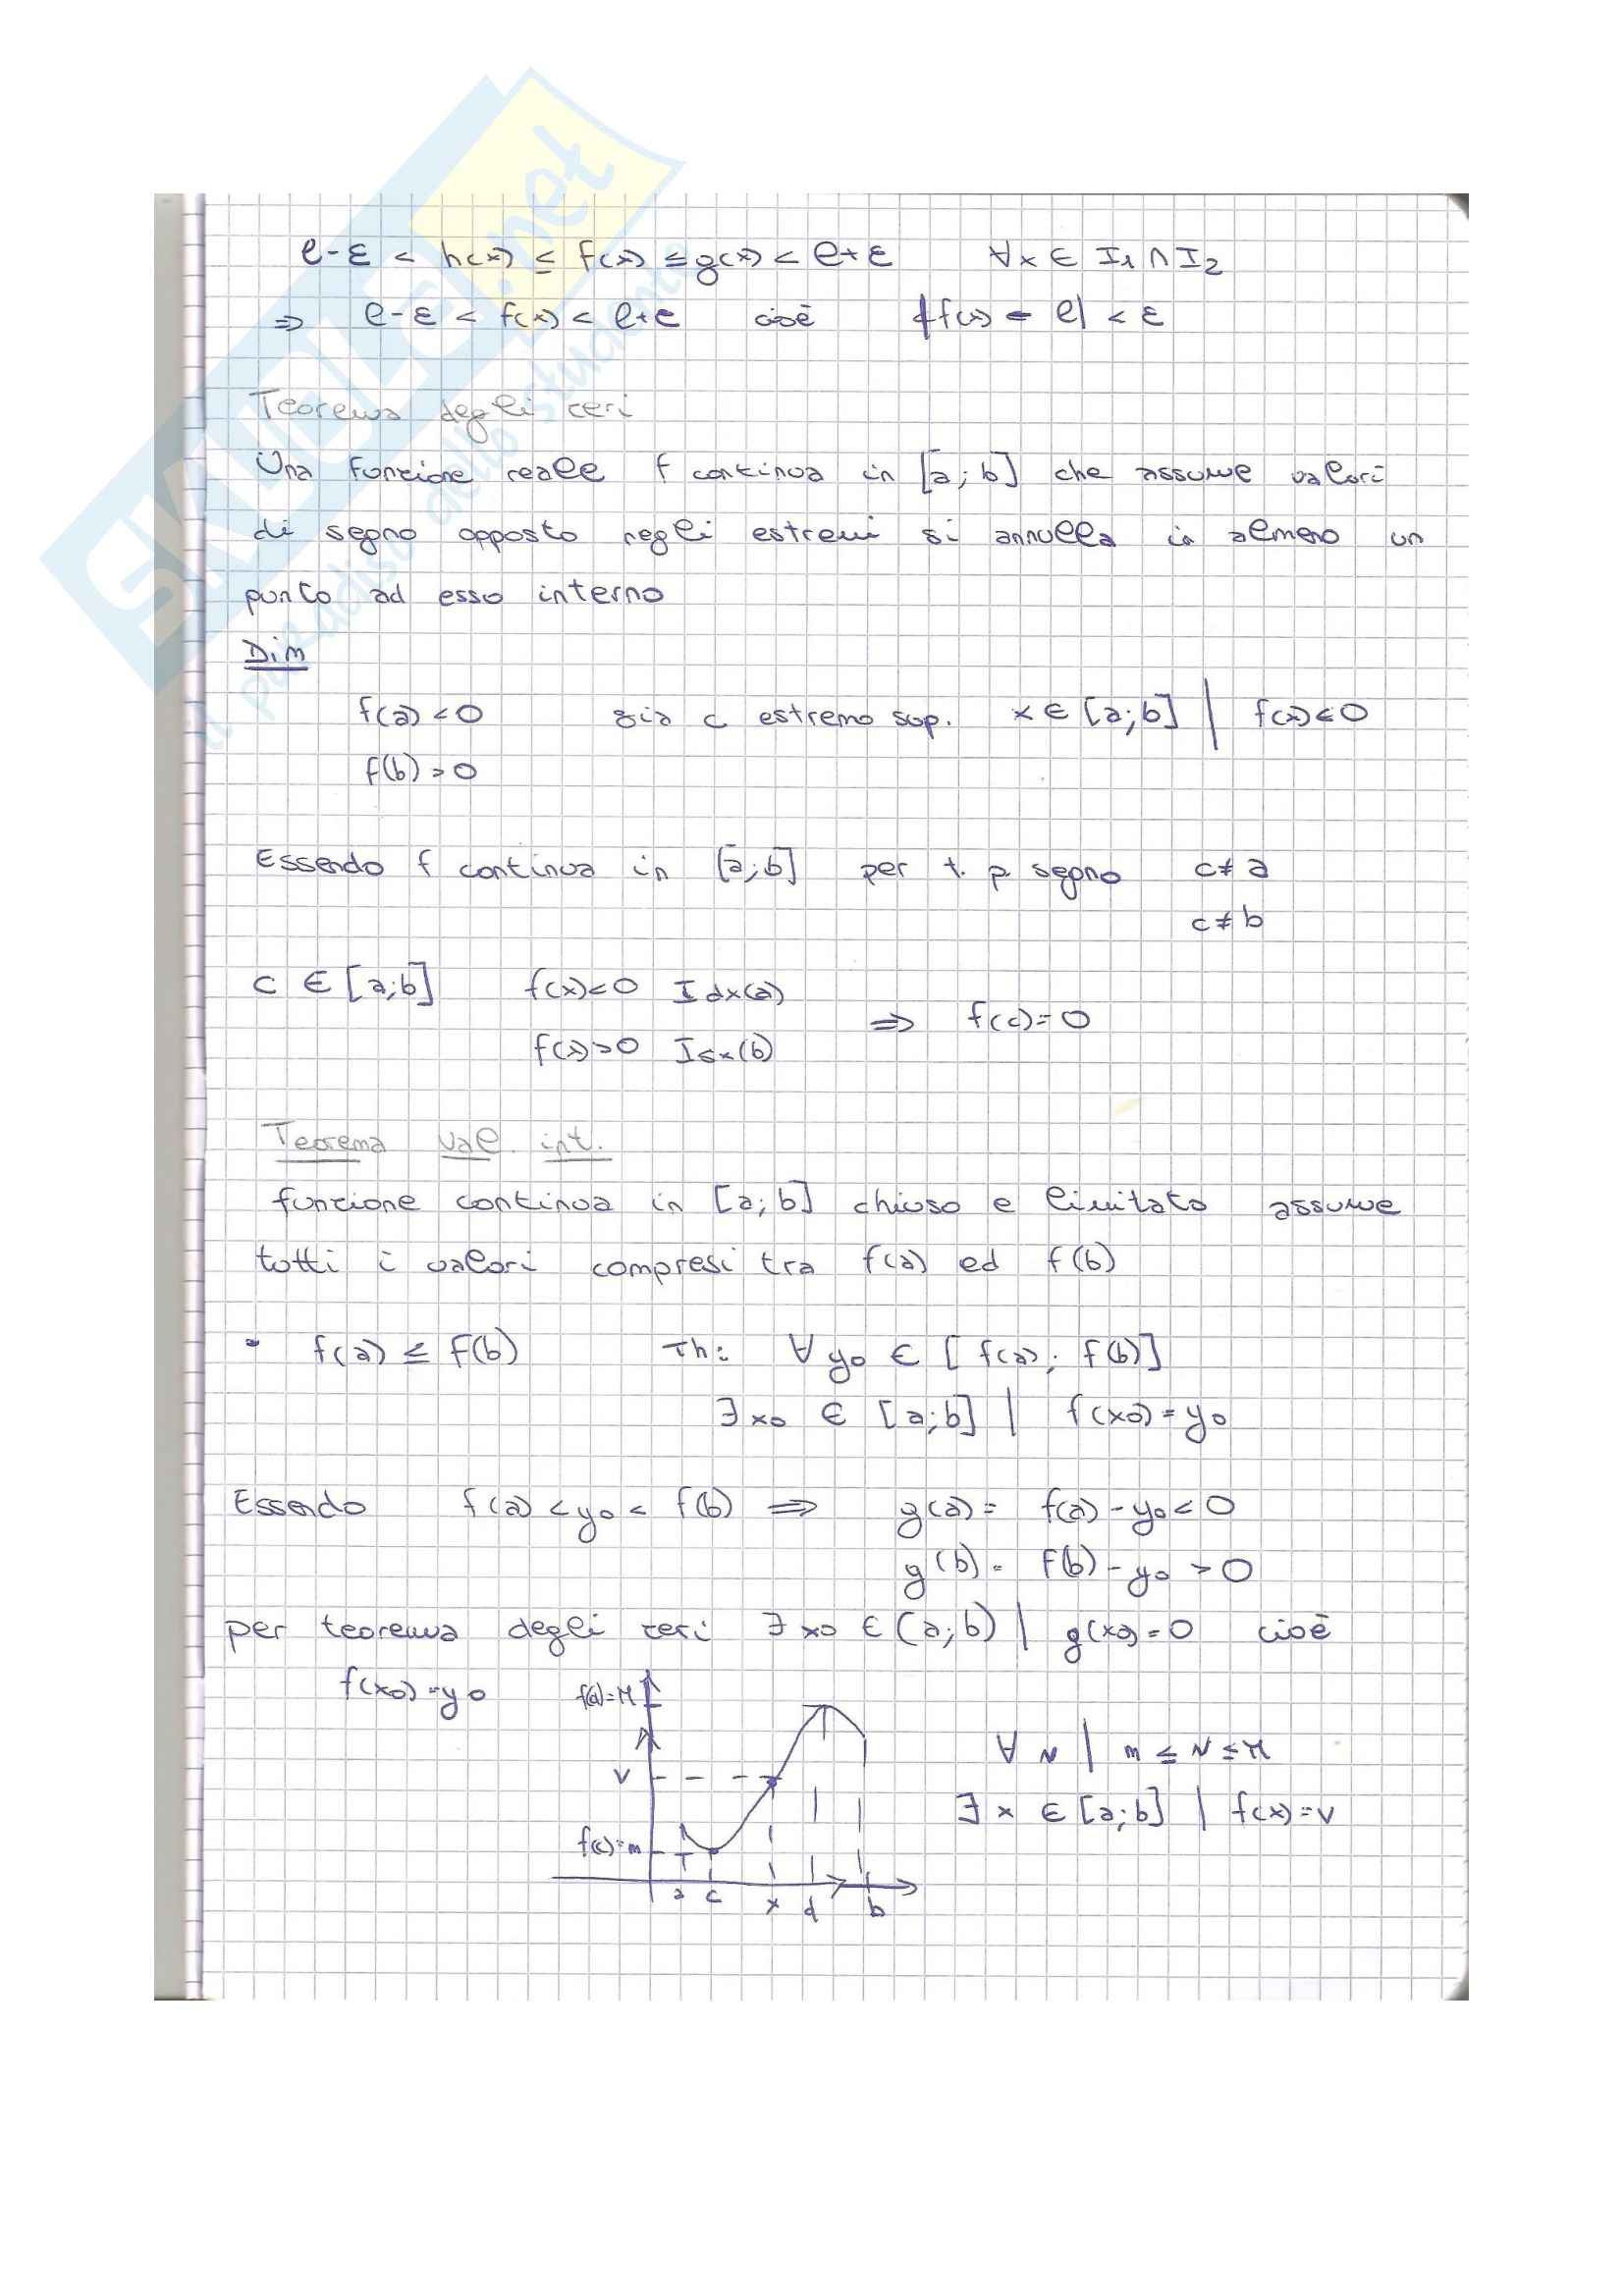 l-ε < h(x) ≤ f(x) ≤ g(x) < l+ε ∀x ∈ I1 ∩ I2
⇒ l-ε < f(x) < l+ε cioè |f(x) - l| < ε
Teorema degli zeri
Una funzione reale f continua in [a;b] che assume valori
di segno opposto negli estremi si annulla in almeno un
punto ad esso interno
Dim
f(a) < 0 sia c estremo sup. x ∈ [a;b] | f(x) < 0
f(b) > 0
Essendo f continua in [a;b] per t. p. segno c ≠ a
c ≠ b
c ∈ [a;b] f(x) < 0 I dx(a)
⇒ f(c) = 0
f(x) > 0 I sx(b)
Teorema val. int.
funzione continua in [a;b] chiuso e limitato assume
tutti i valori compresi tra f(a) ed f(b)
• f(a) ≤ f(b) Th: ∀ y0 ∈ [f(a); f(b)]
∃ x0 ∈ [a;b] | f(x0) = y0
Essendo f(a) < y0 < f(b) ⇒ g(a) = f(a) - y0 < 0
g(b) = f(b) - y0 > 0
per teorema degli zeri ∃ x0 ∈ (a;b) | g(x0) = 0 cioè
f(x0) = y0
f(d) = M
∀ v | m ≤ v ≤ M
v
∃ x ∈ [a;b] | f(x) = v
f(c) = m
a c x d b
SKUOLA.net
il paradiso dello studente